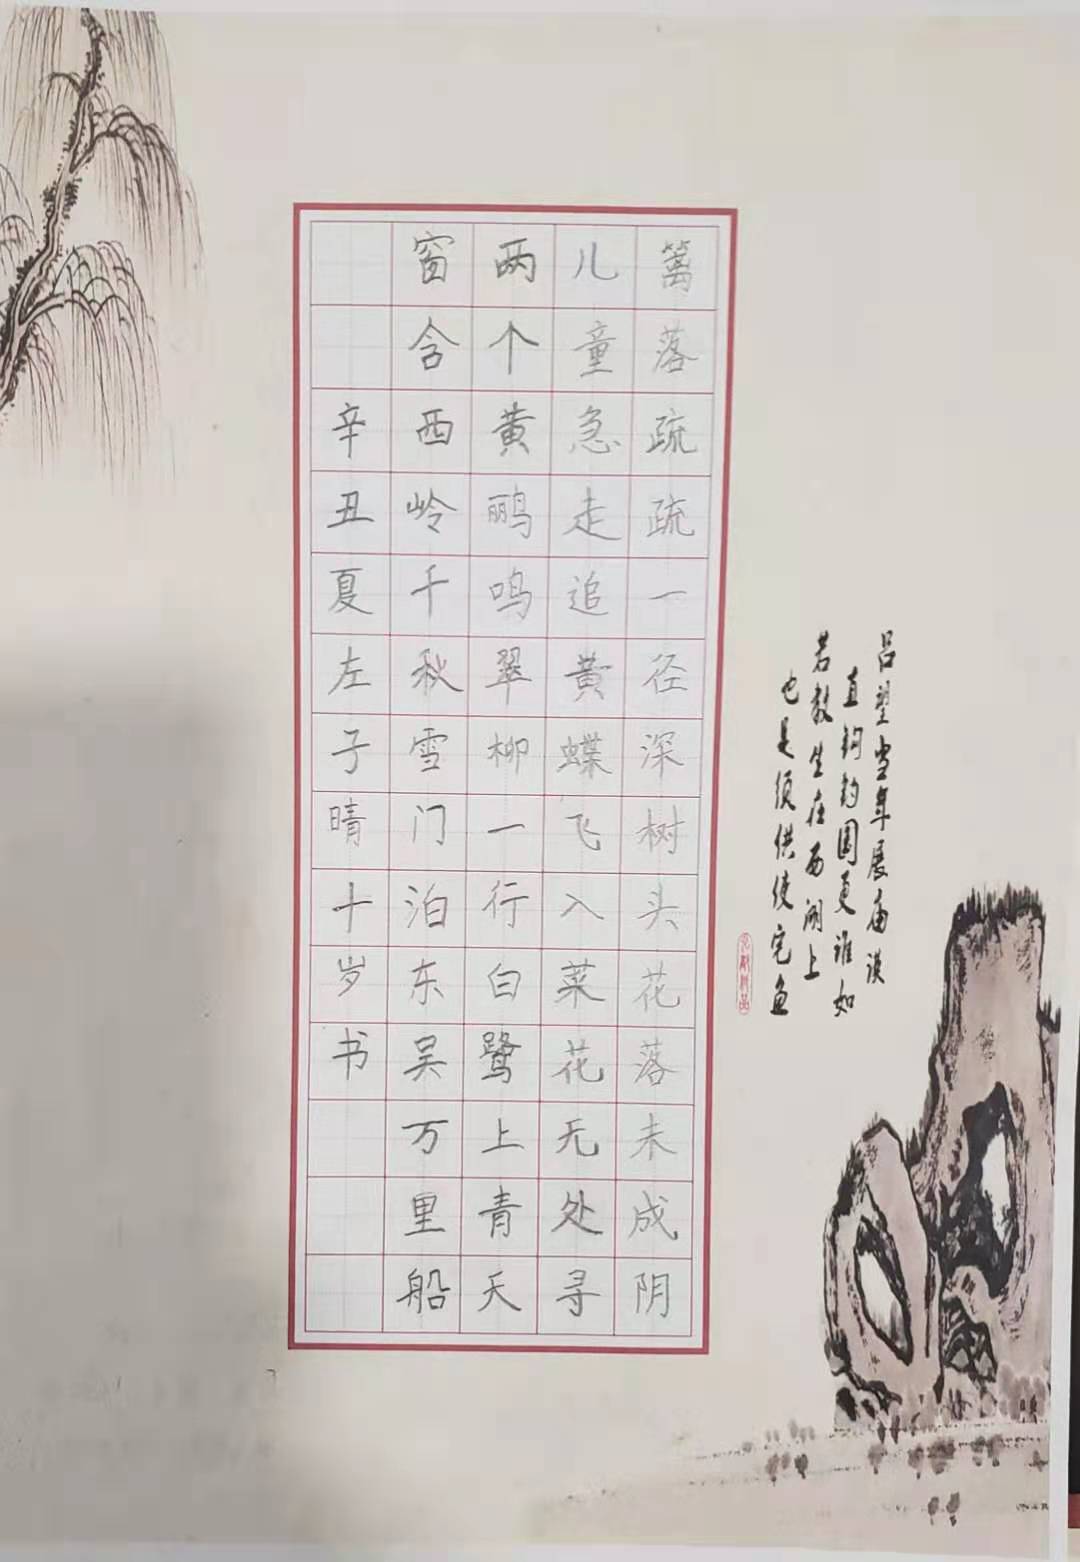 吕望当年展庙谟
直钩钓国更谁如
若教生在西湖上
也是须供使宅鱼
篱落疏疏一径深树头花落未成阴
儿童急走追黄蝶飞入菜花无处寻
两个黄鹂鸣翠柳一行白鹭上青天
窗含西岭千秋雪门泊东吴万里船
辛丑夏左子晴十岁书